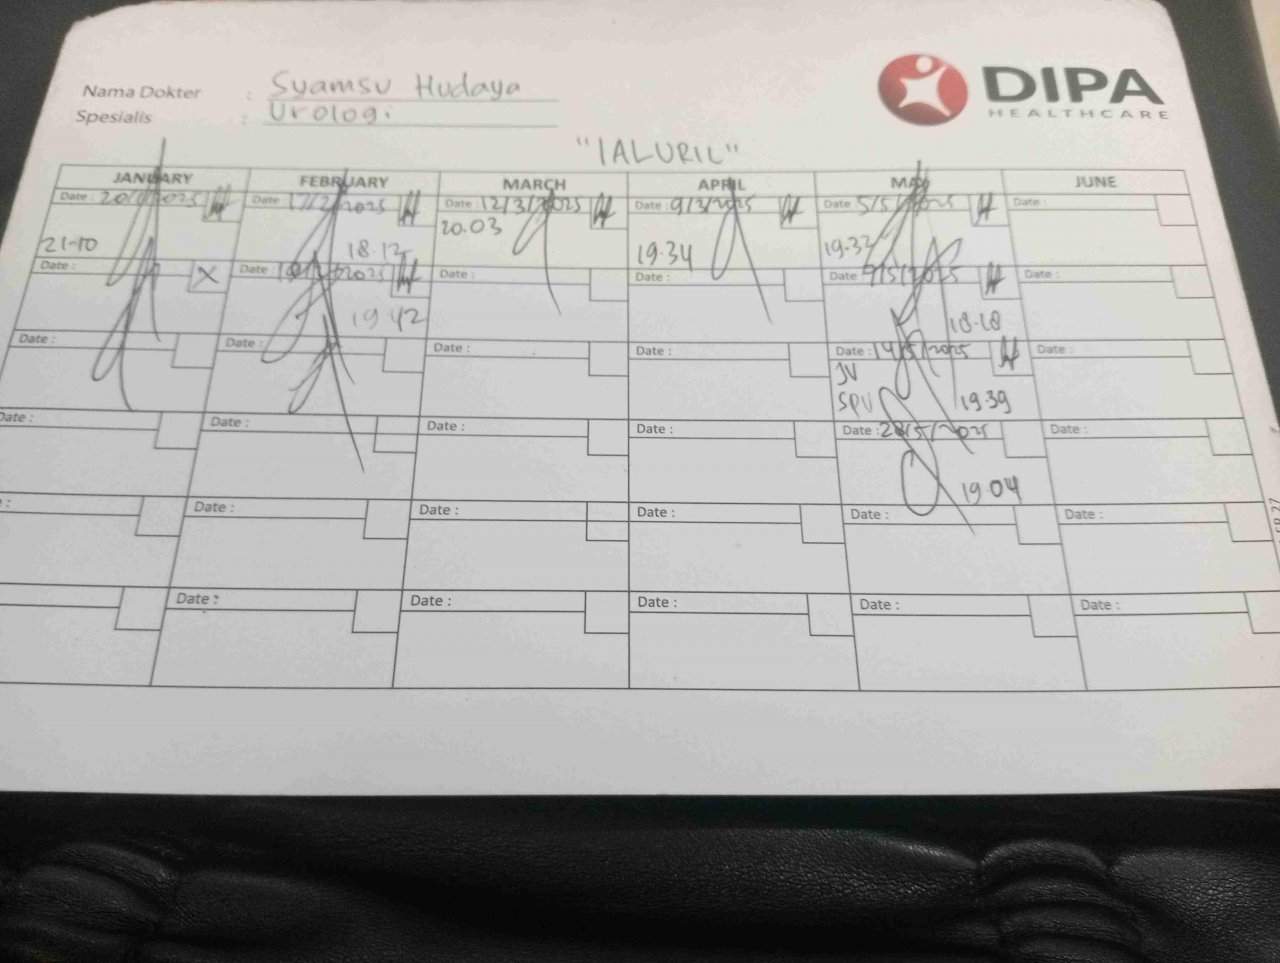 Nama Dokter : Syamsu Hudaya
Spesialis : Urologi
DIPA
HEALTHCARE
"IALURIL"
JANUARY FEBRUARY MARCH APRIL MAY JUNE
Date : 20/1/2025 Date 17/2/2025 Date 12/3/2025 Date : 9/3/2025 Date 5/5/2025 Date :
21-10 18.12 20.03 19.34 19.32
Date : X Date : /2025 Date : Date : Date 9/5/2025 Date :
19 42 18-18
Date : Date : Date : Date : Date : 14/5/2025 Date :
JV
SPV 19.39
Date : Date : Date : Date : Date : 28/5/2025 Date :
19.04
: Date : Date : Date : Date : Date :
Date : Date : Date : Date : Date :